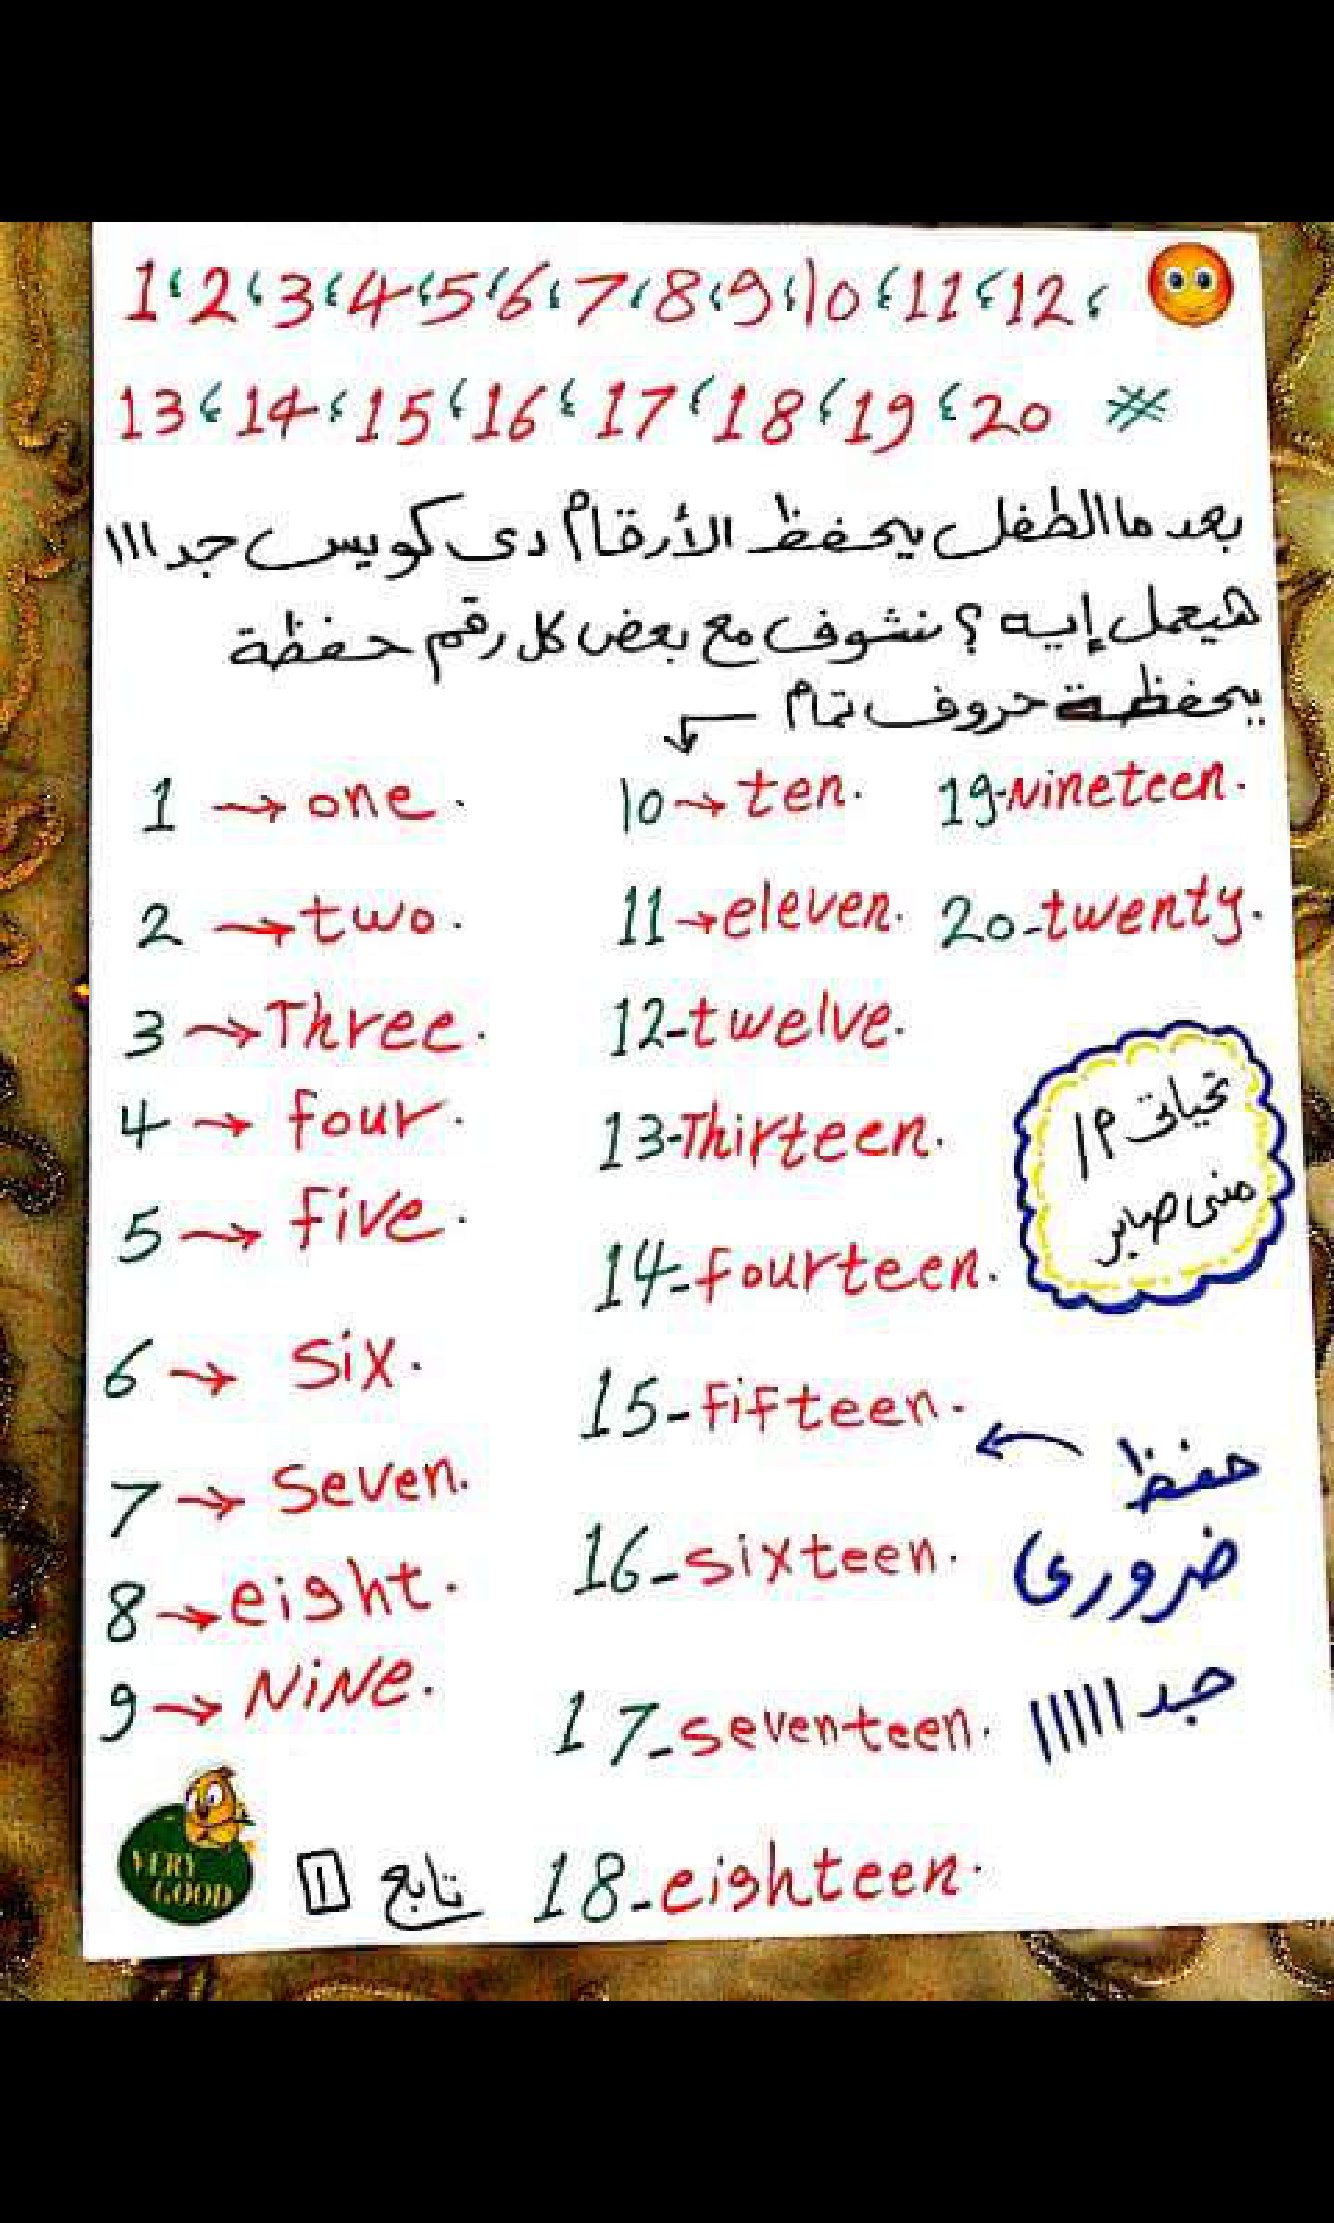 1، 2، 3، 4، 5، 6، 7، 8، 9، 10، 11، 12،
13، 14، 15، 16، 17، 18، 19، 20 #
بعد ما الطفل يحفظ الأرقام دى كويس جداااا
هيعمل إيه ؟ نشوف مع بعض كل رقم حفظة
يحفظة حروف تمام
1 → one.
2 → two.
3 → Three.
4 → four.
5 → five.
6 → six.
7 → seven.
8 → eight.
9 → NiNe.
10 → ten.
11 → eleven.
12-twelve.
13-Thirteen.
14-fourteen.
15-fifteen.
16-sixteen.
17-seventeen.
18-eighteen.
19-Nineteen.
20-twenty.
تحياتى م/
منى صابر
حفظ
ضرورى
جداااااا
تابع 1
VERY
GOOD